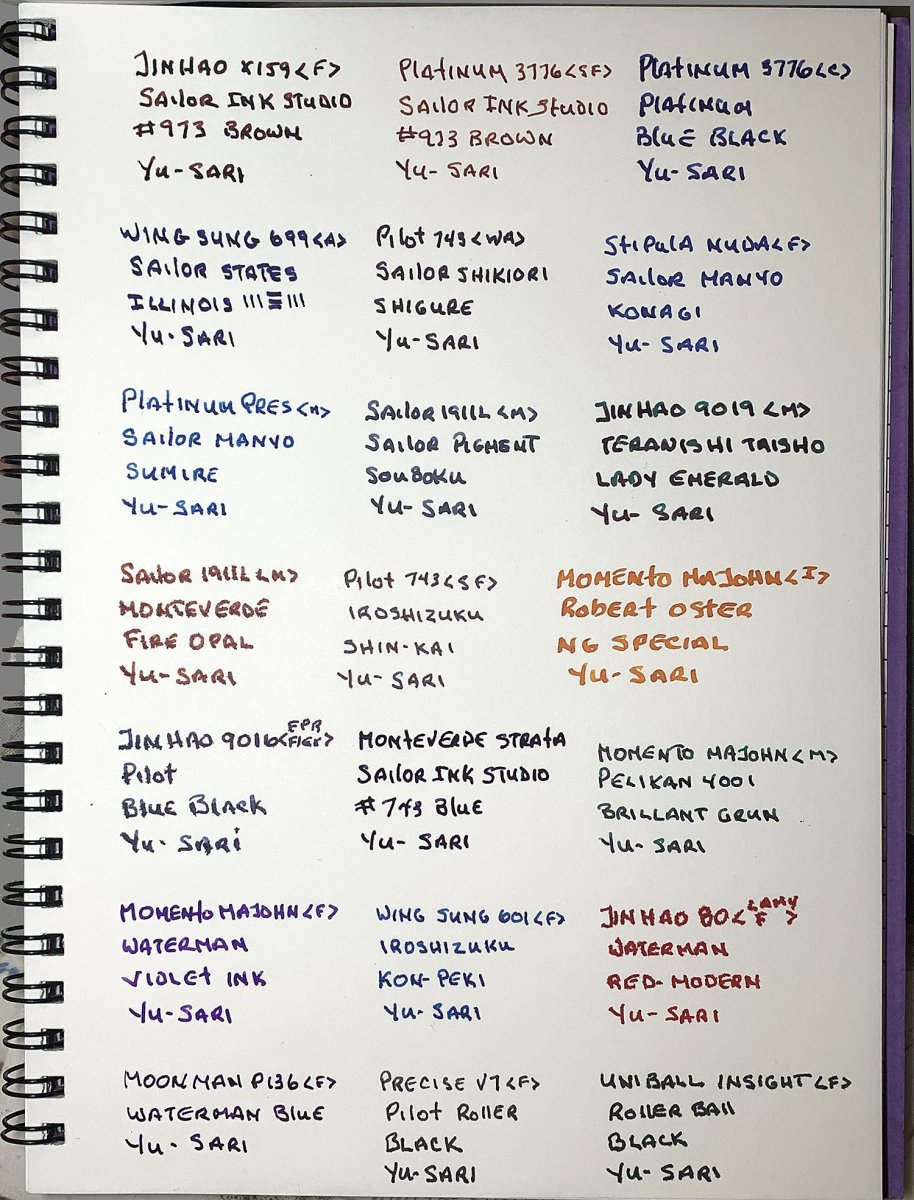 JINHAO X159<F>
SAILOR INK STUDIO
#973 BROWN
YU-SARI
PLATINUM 3776<SF>
SAILOR INK STUDIO
#933 BROWN
YU- SARI
PLATINUM 3776<C>
PLATINUM
BLUE BLACK
YU- SARI
WING SUNG 699<A>
SAILOR STATES
ILLINOIS
YU-SARI
Pilot 743<WA>
SAILOR SHIKIORI
SHIGURE
YU-SARI
StiPulA NUDA<F>
SAILOR MANYO
KONAGI
YU- SARI
PLATINUM PRES<M>
SAILOR MANYO
SUMIRE
YU-SARI
SAILOR 1911L<M>
SAILOR PIGMENT
SOUBOKU
YU- SARI
JINHAO 9019<M>
TERANISHI TAISHO
LADY EMERALD
YU- SARI
SAILOR 1911L<M>
MONTEVERDE
FIRE OPAL
YU-SARI
Pilot 743<SF>
IROSHIZUKU
SHIN-KAI
YU- SARI
MOMENTO MAJOHN<I>
ROBERT OSTER
NG SPECIAL
YU-SARI
JINHAO 9016<EPR FLEX>
Pilot
BLUE BLACK
YU-SARI
MONTEVERDE STRATA
SAILOR INK STUDIO
#743 BLUE
YU- SARI
MOMENTO MAJOHN<M>
PELIKAN 4001
BRILLANT GRUN
YU-SARI
MOMENTO MAJOHN<F>
WATERMAN
VIOLET INK
YU-SARI
WING SUNG 601<F>
IROSHIZUKU
KON-PEKI
YU-SARI
JINHAO 80<LAMY F>
WATERMAN
RED-MODERN
YU-SARI
MOONMAN P136<F>
WATERMAN BLUE
YU-SARI
PRECISE V7<F>
Pilot Roller
BLACK
YU-SARI
UNIBALL INSIGHT<F>
ROLLER BALL
BLACK
YU-SARI